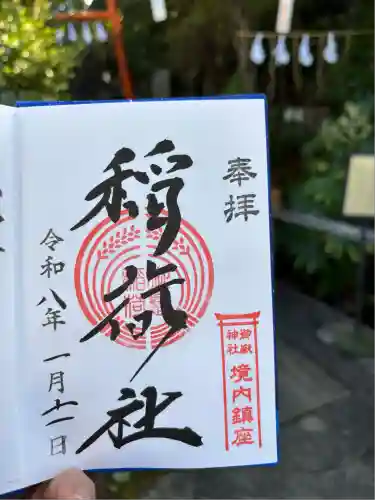 奉拝
稲荷社
令和八年一月十一日
御嶽
神社
境内鎮座